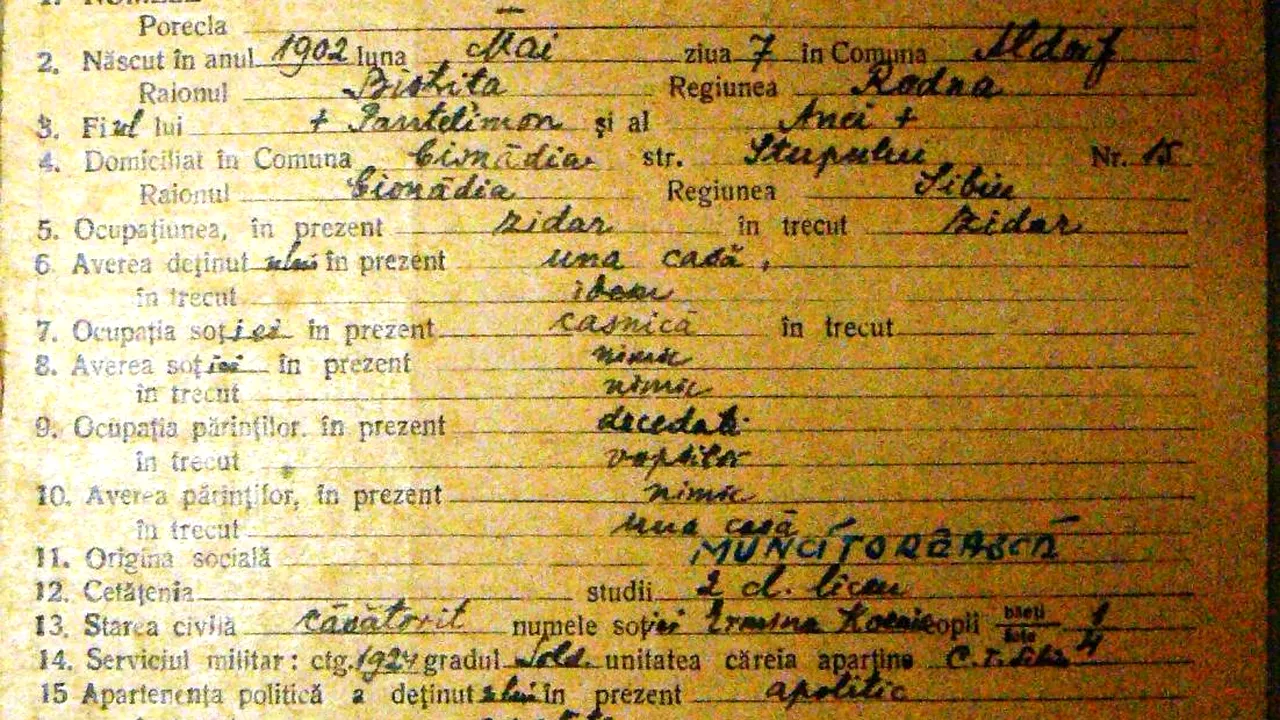 1. NUMELE
Porecla —
2. Născut în anul 1902 luna Mai ziua 7 în Comuna Aldorf
Raionul Bistrita Regiunea Rodna
3. Fiul lui + Pantelimon și al Anei +
4. Domiciliat în Comuna Cisnădia str. Stupului Nr. 15
Raionul Cisnădia Regiunea Sibiu
5. Ocupațiunea, în prezent zidar în trecut zidar
6. Averea deținutului în prezent una casă,
în trecut idem
7. Ocupația soției în prezent casnică în trecut
8. Averea soției în prezent nimic
în trecut nimic
9. Ocupația părinților, în prezent decedati
în trecut
10. Averea părinților, în prezent nimic
în trecut una casă
11. Origina socială MUNCITOREASCĂ
12. Cetățenia studii 2 cl. liceu
13. Starea civilă căsătorit numele soției Ermina copii băeți 1
fete 4
14. Serviciul militar: ctg. 1924 gradul Sold. unitatea căreia aparține C.T. Sibiu
15 Apartenența politică a deținutului în prezent apolitic